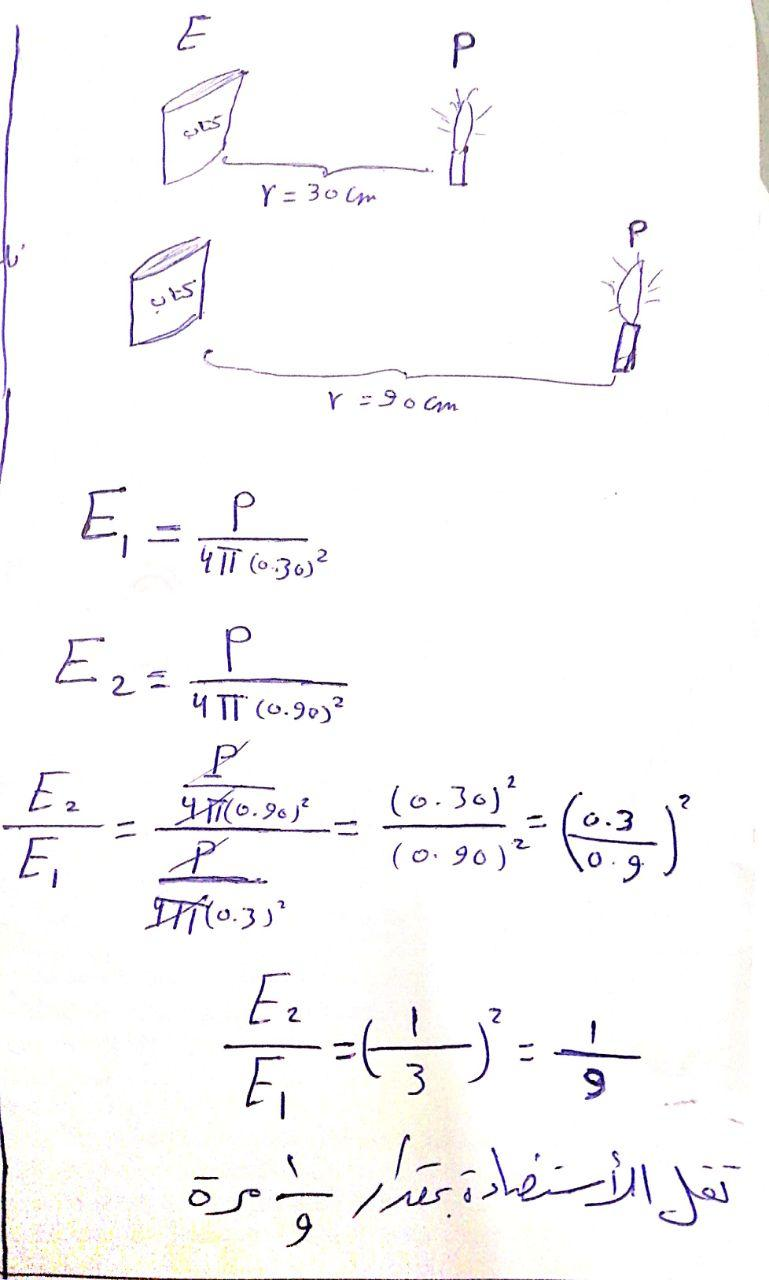 E
P
كتاب
r = 30 cm
P
كتاب
r = 90 cm
E₁ = P / 4π (0.30)²
E₂ = P / 4π (0.90)²
E₂ / E₁ = (P / 4π(0.90)²) / (P / 4π(0.3)²) = (0.30)² / (0.90)² = (0.3 / 0.9)²
E₂ / E₁ = (1 / 3)² = 1 / 9
تقل الأستضاءة بمقدار ١ / ٩ مرة